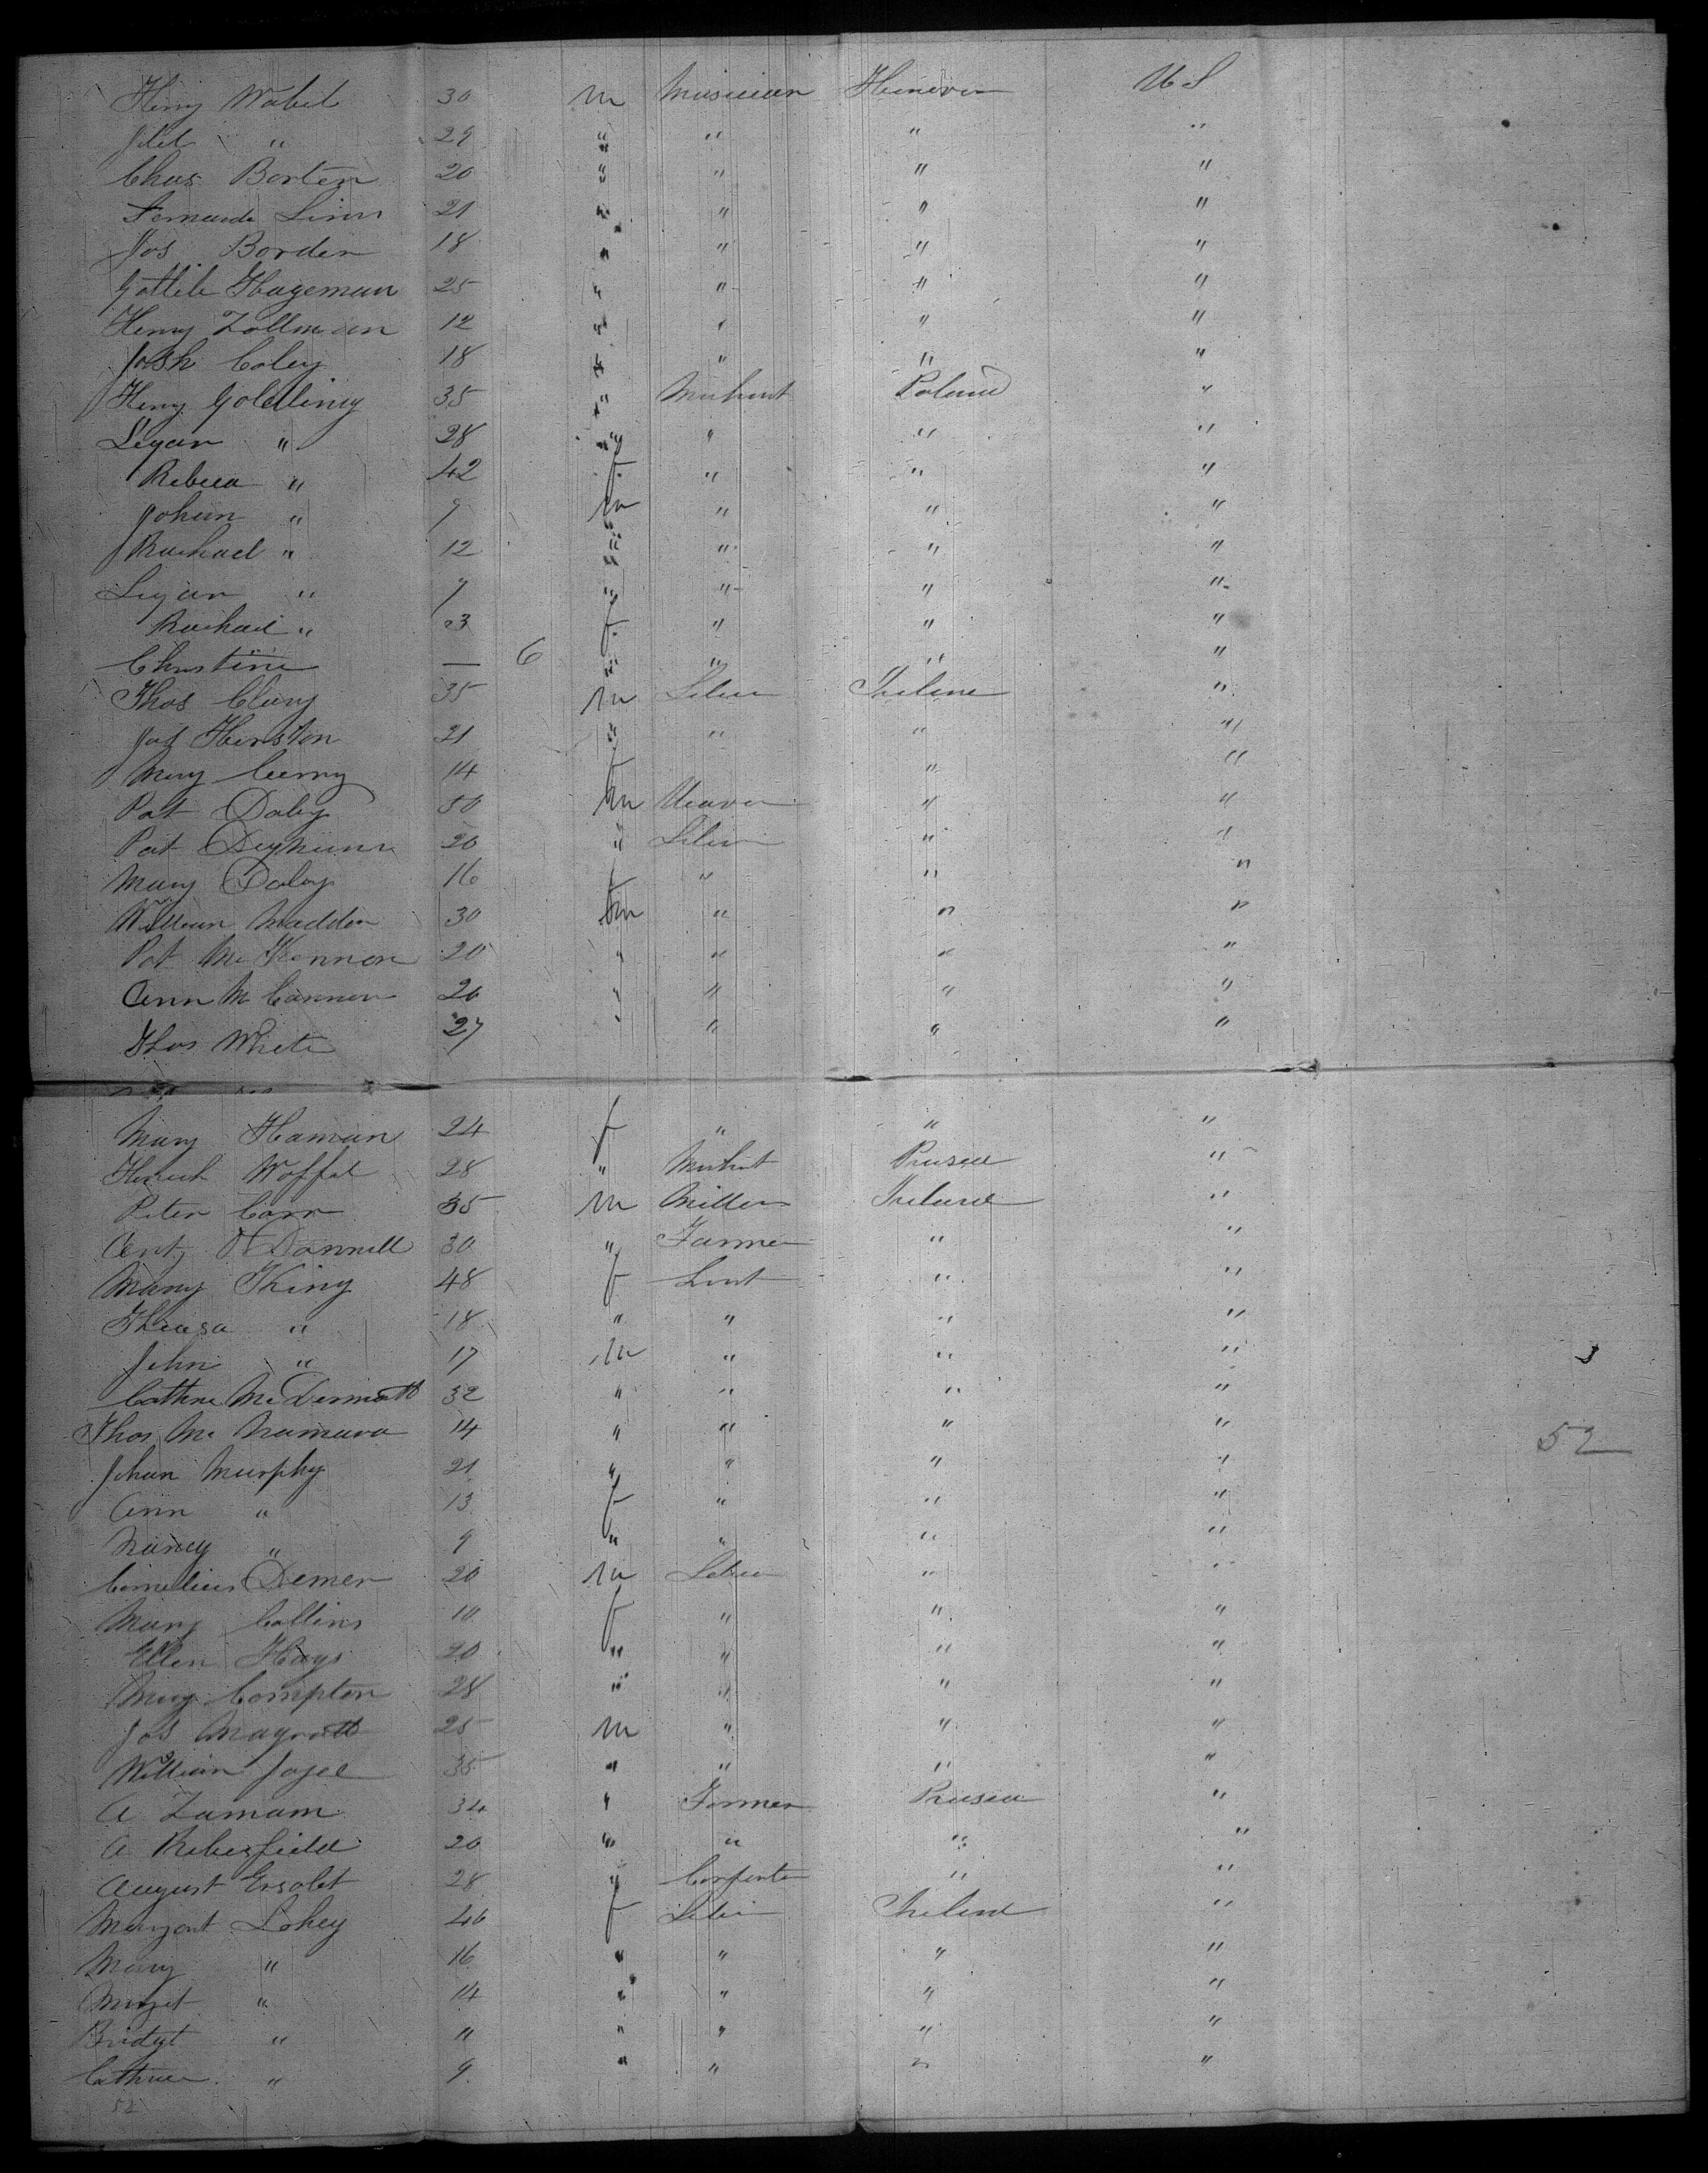 Heny Wabel 30 m Musician Hanover U S
" 29 " " " "
Chas Borten 20 " " " "
Fernande Linn 21 " " " "
Jos Borden 18 " " " "
Gottleb Hageman 25 " " " "
Henry Zollman 12 " " " "
Josh Coley 18 " " " "
Heny Goldliny 35 " Merhant Poland "
Ligan " 28 " " " "
Rebeca " 42 f " " "
Johan " 9 m " " "
Rachael " 12 " " " "
Ligan " 7 " " " "
Rachael " 3 f " " "
Christine — 6 " " " "
Thos Clury 35 m Leber Ireland "
Jas Hinston 21 " " " "
Mary 14 f " "
Pat Daley 50 m Weaver " "
Pat 20 " Leber " "
Mary Daley 16 f " " "
William Madden 30 m " " "
Pat Mc Kennon 20 " " " "
Ann Mc Cannon 20 " " " "
Thos White 27 " " " "
Mary Haman 24 f " " "
Henrich Woffel 28 " Merhant Prusia "
Peter Carr 35 m Miller Ireland "
Anty O Donnell 30 " Farmer " "
Mary King 48 f " "
Theasa " 18 " " " "
John " 17 m " " "
Cathrne Mc Dermott 32 " " " "
Thos Mc Namara 14 " " " "
52
Johan Murphy 21 " " " "
Ann " 13 f " " "
Nancy " 9 " " " "
Cornelius Demer 20 m Leber " "
Mary Collins 10 f " " "
Ellen Hays 20 " " " "
Mary Compton 28 " " " "
Jos 25 m " " "
William 35 " " " "
A Zamam 34 " Farmer Prusia "
A Rebesfield 20 " " " "
August Ersolet 28 " Carpenter " "
Margart Lohey 46 f Leber Ireland "
Mary " 16 " " " "
Marget " 14 " " " "
Bridgt " 11 " " " "
Cathrne " 9 " " " "
52